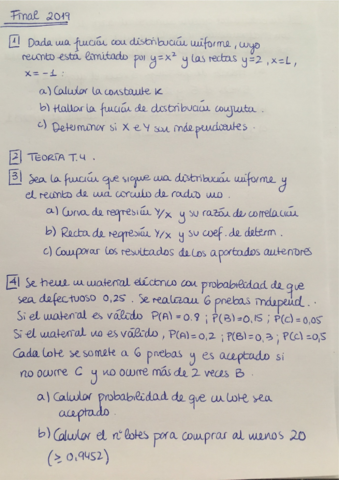 Final 2019
1 Dada una función con distribución uniforme, cuyo
recinto está limitado por y=x² y las rectas y=2, x=1,
x=-1:
a) Calcular la constante K
b) Hallar la función de distribución conjunta.
c) Determinar si X e Y son independientes.
2 TEORÍA T.4.
3 Sea la función que sigue una distribución uniforme y
el recinto de una círculo de radio uno.
a) Curva de regresión Y/X y su razón de correlación
b) Recta de regresión Y/X y su coef. de determ.
c) Comparar los resultados de los apartados anteriores
4 Se tiene un material eléctrico con probabilidad de que
sea defectuoso 0,25. Se realizan 6 prebas independ..
Si el material es válido P(A)=0.8; P(B)=0,15; P(C)=0,05
Si el material no es válido, P(A)=0,2; P(B)=0,3; P(C)=0,5
Cada lote se somete a 6 prebas y es aceptado si
no ocurre C y no ocurre más de 2 veces B.
a) Calcular probabilidad de que un lote sea
aceptado.
b) Calcular el nº lotes para comprar al menos 20
(≥ 0,9452)